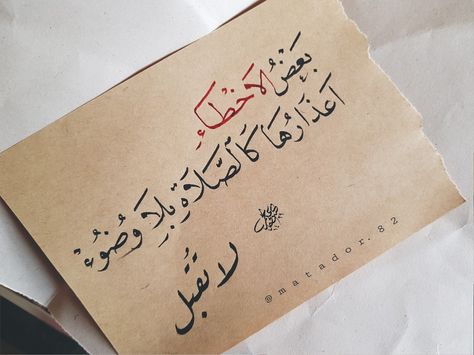 بَعْضُ لاَخْطَاءِ
اَعْذَارُهَا كَالصَّلَاةِ بِلَا وُضُوءْ
لا تُقْبل
@matador.82